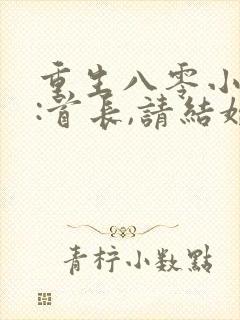 重生八零小
:首長,請結婚
青柠小数點